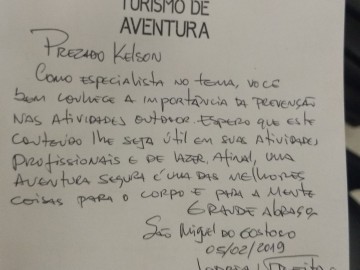 TURISMO DE
AVENTURA
PREZADO KELSON
COMO ESPECIALISTA NO TEMA, VOCÊ
BEM CONHECE A IMPORTÂNCIA DA PREVENÇÃO
NAS ATIVIDADES OUTDOOR. ESPERO QUE ESTE
CONTEÚDO LHE SEJA ÚTIL EM SUAS ATIVIDADES
PROFISSIONAIS E DE LAZER. AFINAL, UMA
AVENTURA SEGURA É UMA DAS MELHORES
COISAS PARA O CORPO E PARA A MENTE
GRANDE ABRAÇO
SÃO MIGUEL DO GOSTOSO
05/02/2019